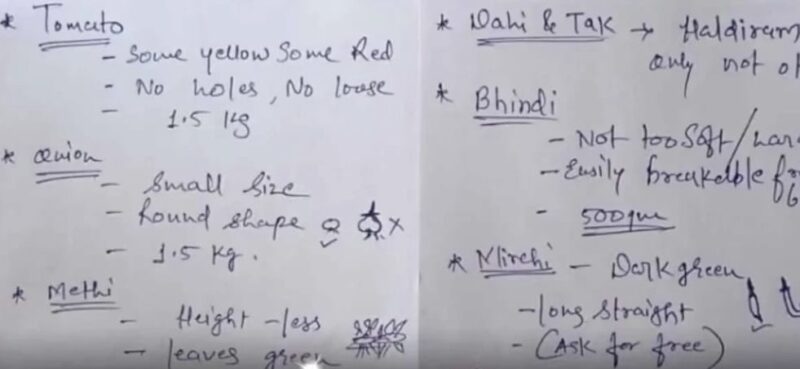 * Tomato
- Some yellow Some Red
- No holes, No louse
- 1.5 Kg
* onion
- Small Size
- Round shape
- 1.5 Kg.
* Methi
- Height - less
- leaves green
* Dahi & Tak → Haldiram
only not
* Bhindi
- Not too Soft/
- Easily breakable
- 500gm
* Mirchi - Dark green
- long straight
- (Ask for free)